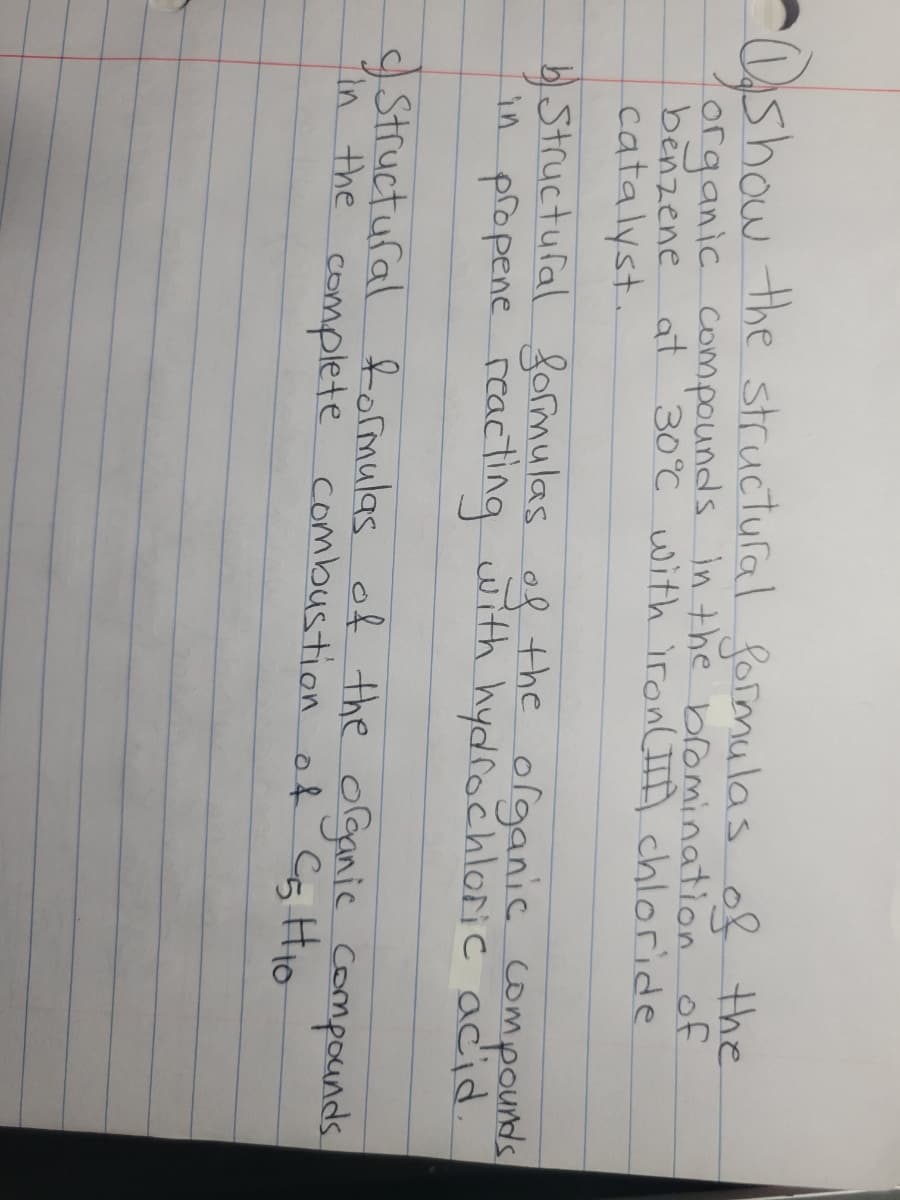 ① a) Show the structural formulas of the
organic compounds in the bromination of
benzene at 30°C with iron(III) chloride
catalyst.
b) Structural formulas of the organic compounds
in propene reacting with hydrochloric acid.
c) Structural formulas of the organic compounds
in the complete combustion of C₅H₁₀